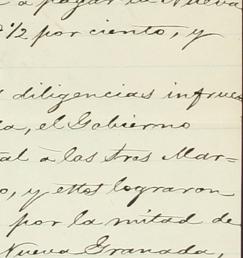 a pagar la Nueva
2 1/2 por ciento, y
diligencias infruc
el Gobierno
tal a las tres Mar=
o, y ellos lograron
por la mitad de
Nueva Granada,